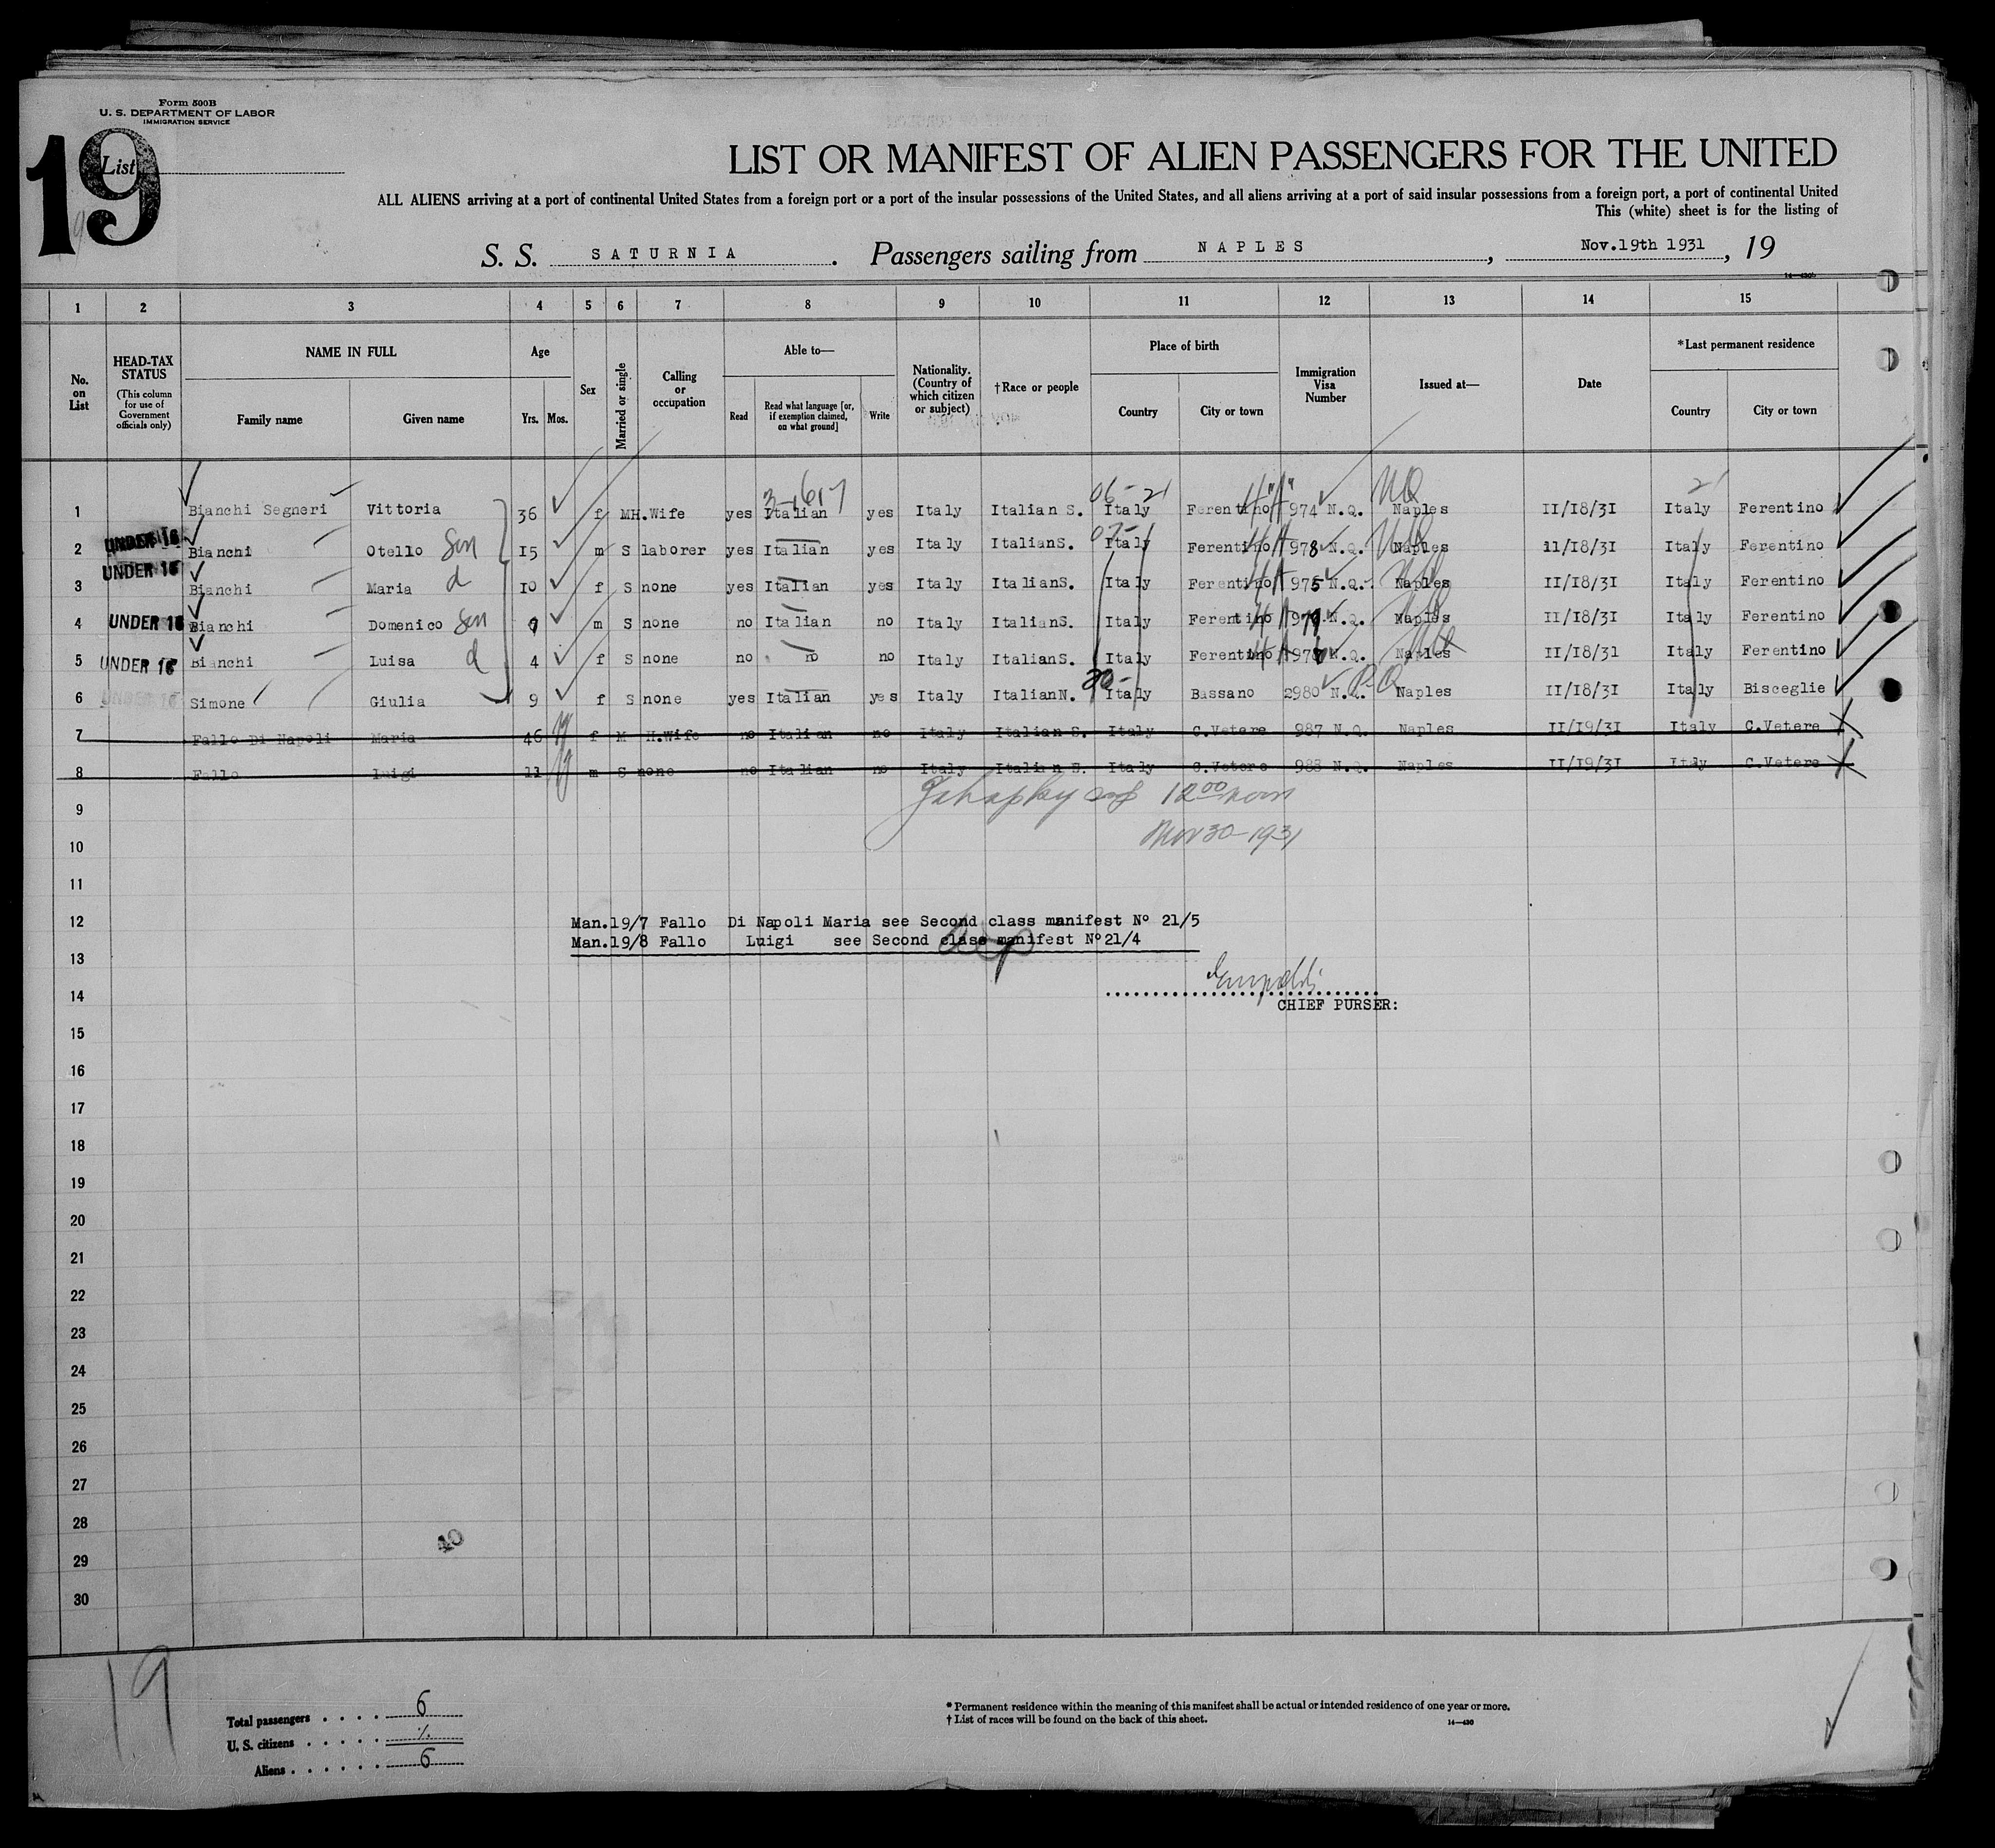 Form 500B
U. S. DEPARTMENT OF LABOR
IMMIGRATION SERVICE
19
List
LIST OR MANIFEST OF ALIEN PASSENGERS FOR THE UNITED
ALL ALIENS arriving at a port of continental United States from a foreign port or a port of the insular possessions of the United States, and all aliens arriving at a port of said insular possessions from a foreign port, a port of continental United
This (white) sheet is for the listing of
S. S. SATURNIA. Passengers sailing from NAPLES, Nov.19th 1931, 19
1 2 3 4 5 6 7 8 9 10 11 12 13 14 15
No. on List
HEAD-TAX STATUS (This column for use of Government officials only)
NAME IN FULL Family name Given name
Age Yrs. Mos.
Sex
Married or single
Calling or occupation
Able to— Read Read what language [or, if exemption claimed, on what ground] Write
Nationality. (Country of which citizen or subject)
†Race or people
Place of birth Country City or town
Immigration Visa Number
Issued at—
Date
*Last permanent residence Country City or town
1 Bianchi Segneri Vittoria 36 f M H.Wife yes Italian yes Italy Italian S. Italy Ferentino 974 N.Q. Naples 11/18/31 Italy Ferentino
2 UNDER 16 Bianchi Otello Son 15 m S laborer yes Italian yes Italy Italian S. Italy Ferentino 978 N.Q. Naples 11/18/31 Italy Ferentino
3 UNDER 16 Bianchi Maria d 10 f S none yes Italian yes Italy Italian S. Italy Ferentino 975 N.Q. Naples 11/18/31 Italy Ferentino
4 UNDER 16 Bianchi Domenico Son m S none no Italian no Italy Italian S. Italy Ferentino N.Q. Naples 11/18/31 Italy Ferentino
5 UNDER 16 Bianchi Luisa d 4 f S none no no no Italy Italian S. Italy Ferentino N.Q. Naples 11/18/31 Italy Ferentino
6 UNDER 16 Simone Giulia 9 f S none yes Italian yes Italy Italian N. Italy Bassano 2980 N.Q. Naples 11/18/31 Italy Bisceglie
7 Fallo Di Napoli Maria 46 f M H.Wife no Italian no Italy Italian S. Italy C.Vetere 987 N.Q. Naples 11/19/31 Italy C.Vetere
8 Fallo Luigi 11 m S none no Italian no Italy Italian S. Italy C.Vetere 988 N.Q. Naples 11/19/31 Italy C.Vetere
9
12 00 noon
10
Nov 30-1931
11
12 Man.19/7 Fallo Di Napoli Maria see Second class manifest Nº 21/5
Man.19/8 Fallo Luigi see Second class manifest Nº 21/4
13
14
CHIEF PURSER:
15
16
17
18
19
20
21
22
23
24
25
26
27
28
29
30
40
19
Total passengers . . . . 6
U. S. citizens . . . . .
Aliens . . . . . . 6
* Permanent residence within the meaning of this manifest shall be actual or intended residence of one year or more.
† List of races will be found on the back of this sheet.
14—430